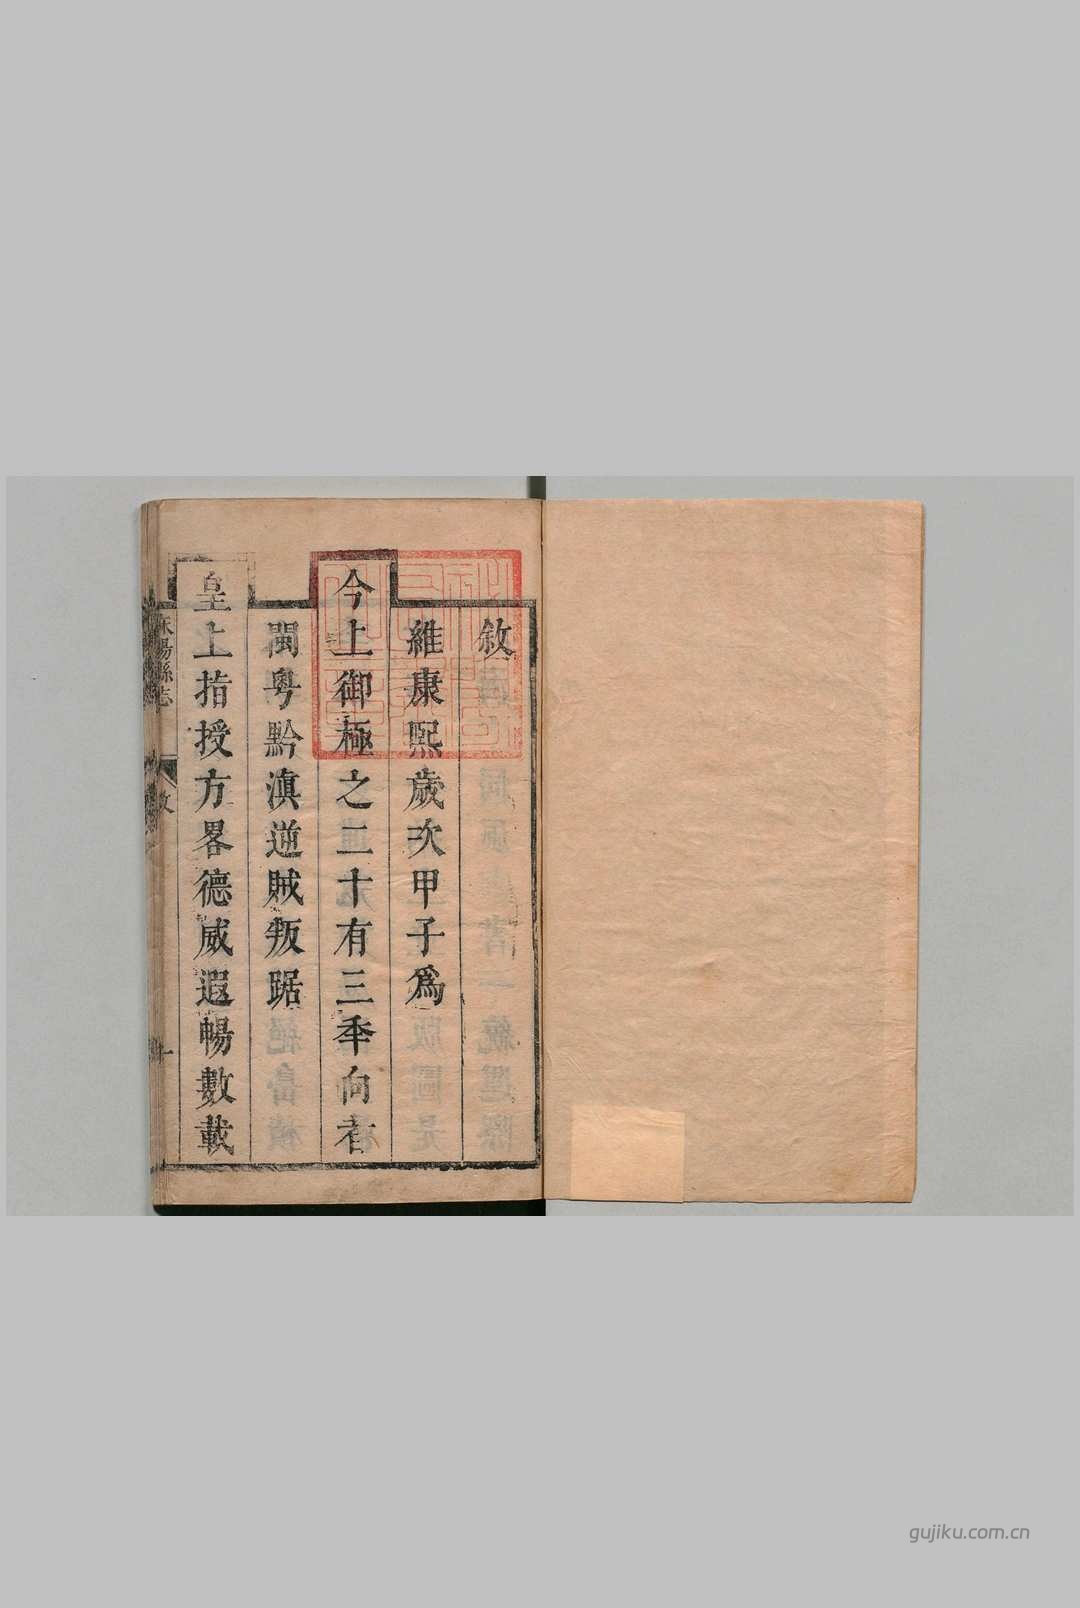 敘
維康熙歲次甲子爲
今上御極之二十有三年向者
閩粤黔滇逆賊叛踞
皇上指授方畧德威遐暢數載
陽縣志
敘
一
gujiku.com.cn